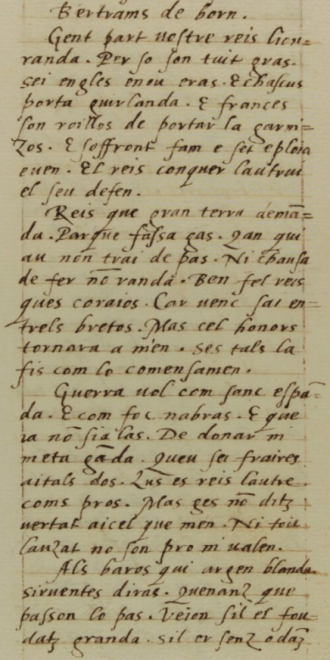 Bertrams de born.
Gent part nostre reis liou=
randa. Per so son tuit gras.
sei engles enou eras. E chascus
porta guirlanda. E frances
son roillos de portar la garni=
zos. E soffront fam e set e ploia
euen. El reis conquer lautrui
el seu defen.
Reis que gran terra demā=
da. Par que fassa gas. Qan qui
au non trai de pas. Ni chausa
de fer nō randa. Ben fel reis
ques coraios. Car uenc sai en=
trels bretos. Mas cel honors
tornara a mien. Ses tals la
fis com lo comensamen.
Guerra uol com sanc espā=
da. E com foc nabras. E que
ia nō sia las. De donar m
meta gāda. Queu sei fraires
aitals dos. Qus es reis lautre
coms pros. Mas ges nō ditz
uertat aicel que men. Ni
lanzat no son pro mi ualen.
Als baros qui argen blanda.
siruentes diras. Quenanz que
passon lo pas. Veion sil el fou=
datz granda. sil er senz o dāz